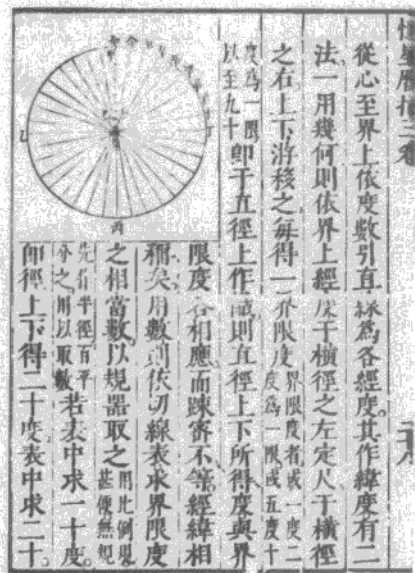 恆星曆指三卷
從心至界上依度數引直線為各經度其作緯度有二
法一用幾何則依界上經度于橫徑之左定尺于橫徑
之右上下游移之每得一介限度界限度者或一度二度為一限或五度十
度為一限以至九十即于直徑上作識則直徑上下所得度與界
限度各相應而踈密不等經緯相
稱矣用數則依切線表求界限度
之相當數以規器取之用比例規甚便無規
先作半徑百平分之用以取數若表中求一十度
即徑上下得二十度表中求二十
乙
丁
丙